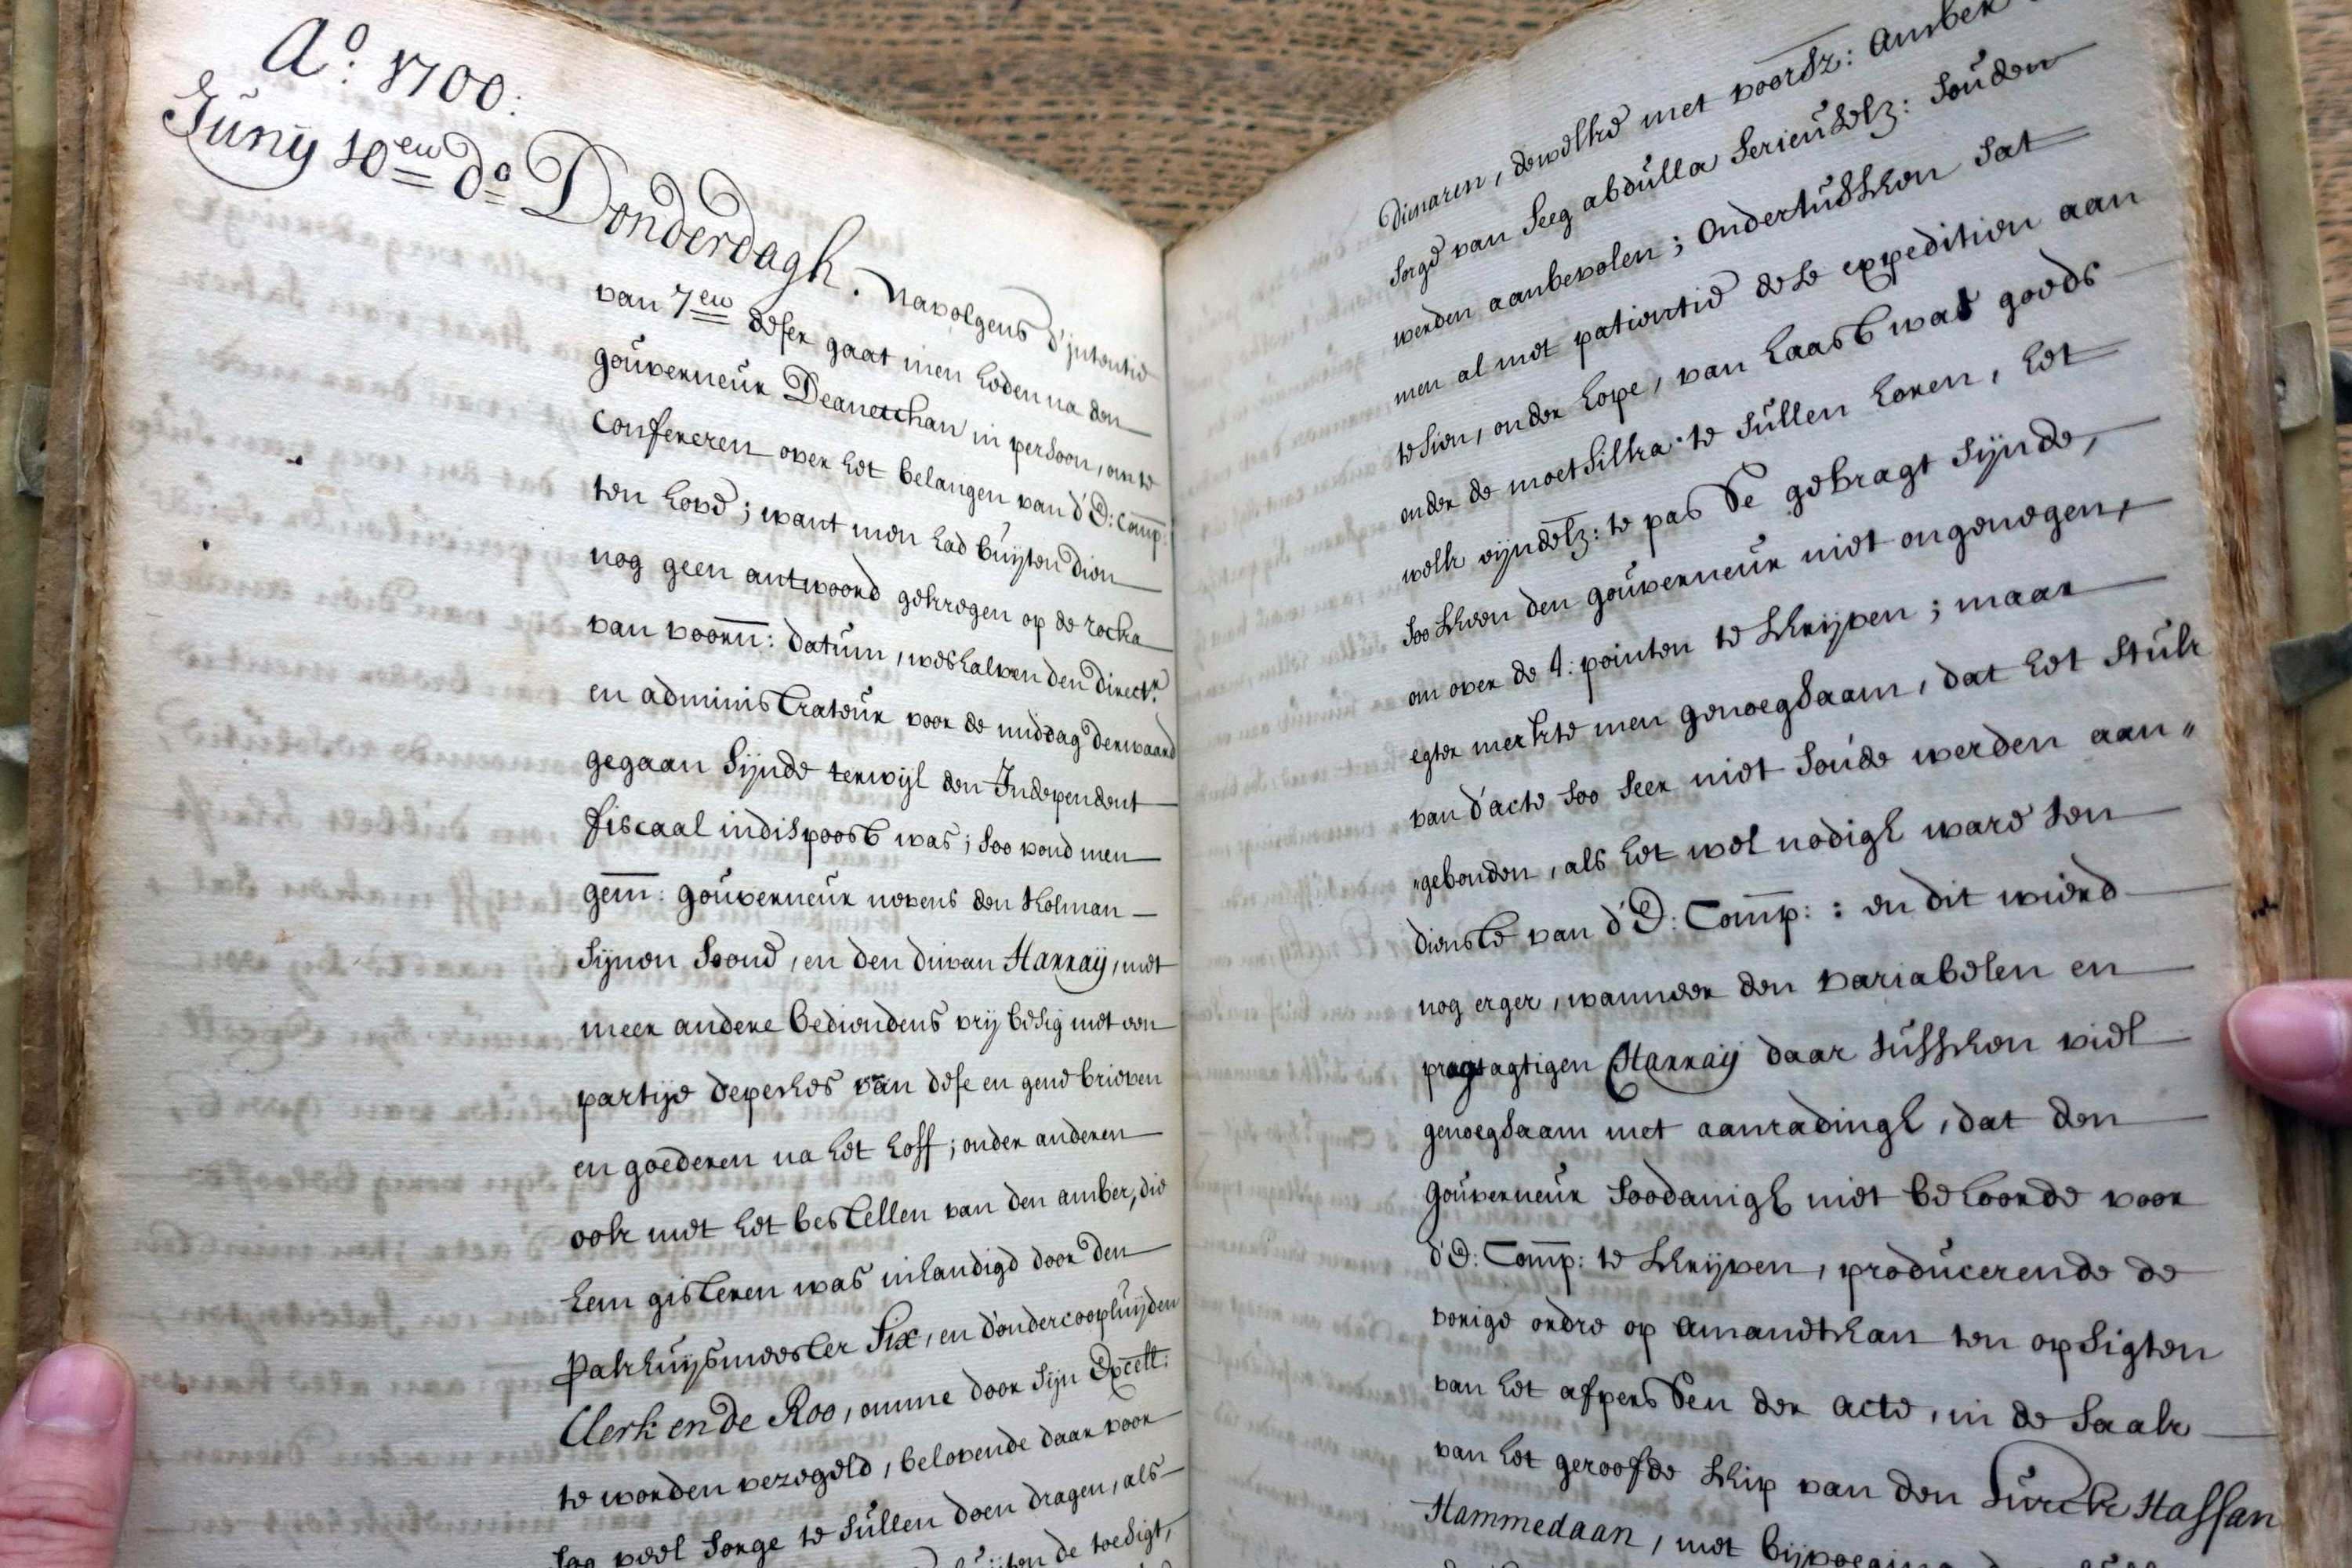 A.º 1700:
Junÿ 10en dº Donderdagh. navolgens d'jntentie
van 7en deser gaat men heden na den
gouverneur Deanetchan in persoon, om te
confereren over het belangen van d'E: Comp:
ten hove; want men had buijten dien
nog geen antwoord gekregen op de rocka
van voorn: datum, weshalven den directr.
en administrateur voor de middag derwaard
gegaan sijnde terwijl den Independent
fiscaal indispoost was; soo vond men
gem: gouverneur nevens den Kotman
sijnen soond, en den divan Harraij, met
meer andere bediendens vrij besig met een
partije depeches van dese en gene brieven
en goederen na het hoff; onder anderen
ook met het bestellen van den amber, die
hem gisteren was inhandigd door den
Pakhuijsmeester Six, en d'ondercoopluijden
Clerk en de Roo, omme door sijn Excell:
te worden verzegeld, belovende daar voor
soo veel sorge te sullen doen dragen, als
de toesigt,
dienaren, dewelke met voorsz: Amber
sorge van Seeg abdulla serieuselz: souden
werden aanbevolen; Ondertusschen sat
men al met patientie dese expeditien aan
te sien, onder hope, van haast wat goeds
onder de moetsilka te sullen horen, het
welk eijndelz: te pas se gebragt sijnde,
soo scheen den gouverneur niet ongenegen,
om over de 4: pointen te schrijven; maar
egter merkte men genoegsaam, dat het stuk
van d'acte soo seer niet soude werden aan„
„gebonden, als het wel nodigh ware ten
dienste van d'E: Comp: : en dit wierd
nog erger, wanneer den variabelen en
pragtagtigen Harraij daar tusschen viel
genoegsaam met aanradingh, dat den
Gouverneur soodanigh niet behoorde voor
d'E: Comp: te schrijven, producerende de
vorige ordre op Amandtchan ten opsigten
van het afperssen der acte, in de saak
van het geroofde schip van den Turck Hassan
Hammedaan, met bijvoeging